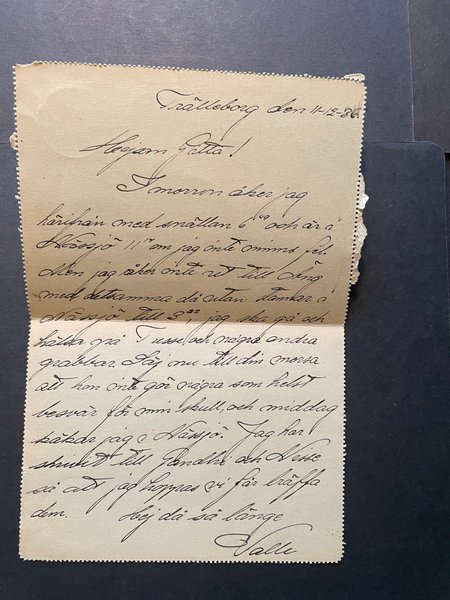 Trälleborg den 11-12-36
Hejsan Gitta!
I morron åker jag
härifrån med snälltan 6 och är i
Nässjö 11 om jag inte minns fel.
Men jag åker inte ut till
med detsamma då utan stannar i
Nässjö till 3 32, jag ska gå och
hälsa på Tusse och några andra
grabbar. Säj nu till din morsa
att hon inte gör några som helst
besvär för min skull, och middag
käkar jag i Nässjö. Jag har
skrivit till Gandhi och Nisse
så att jag hoppas vi får träffa
dem. Hej då så länge
Valle